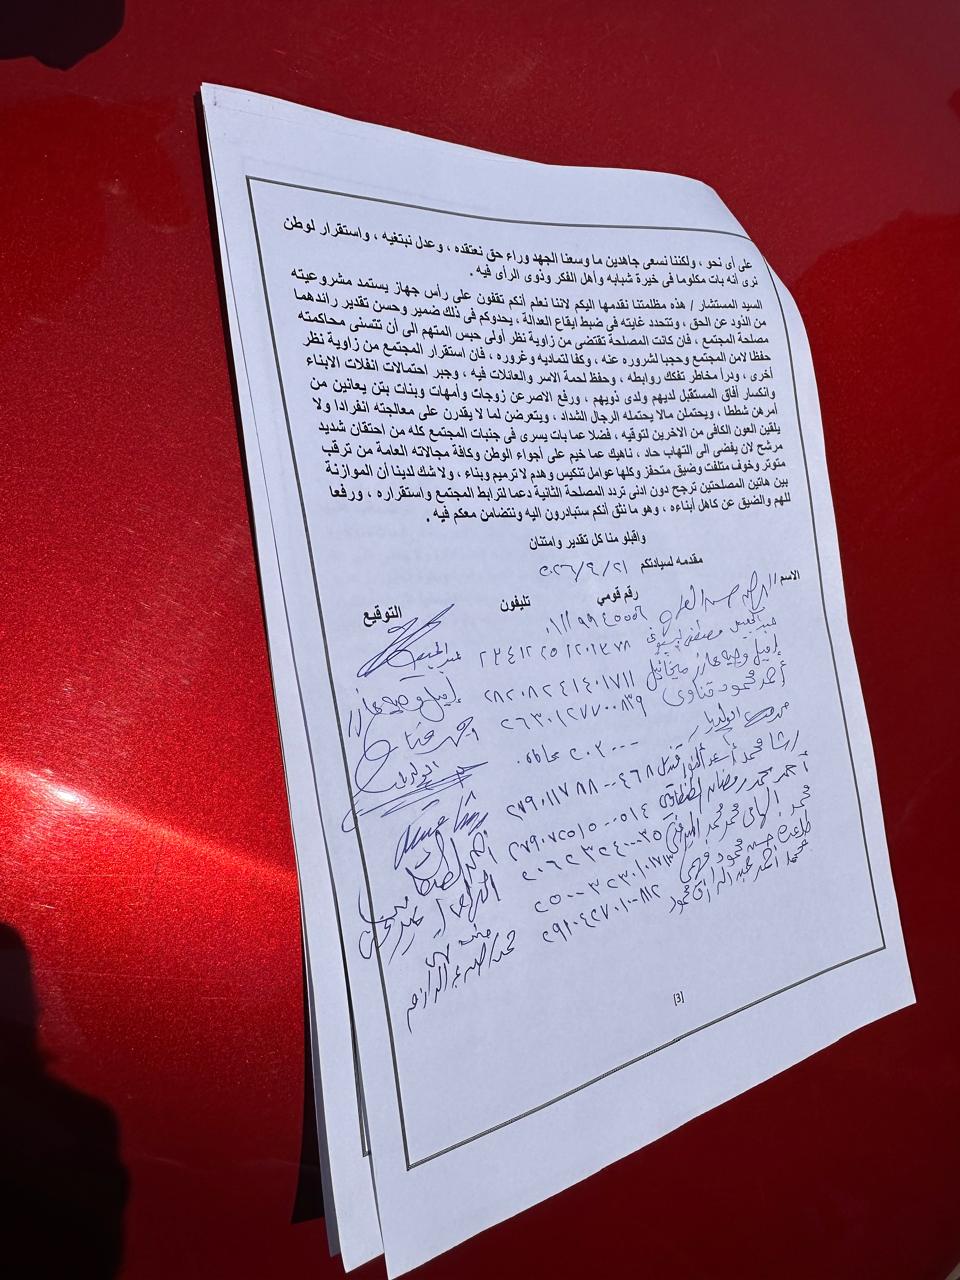 على أى نحو ، ولكننا نسعى جاهدين ما وسعنا الجهد وراء حق نعتقده ، وعدل نبتغيه ، واستقرار لوطن
نرى أنه بات مكلوما فى خيرة شبابه وأهل الفكر وذوى الرأى فيه .
السيد المستشار / هذه مظلمتنا نقدمها اليكم لاننا نعلم أنكم تقفون على رأس جهاز يستمد مشروعيته
من الذود عن الحق ، وتتحدد غايته فى ضبط ايقاع العدالة ، يحدوكم فى ذلك ضمير وحسن تقدير رائدهما
مصلحة المجتمع ، فان كانت المصلحة تقتضى من زاوية نظر أولى حبس المتهم الى أن تتسنى محاكمته
حفظا لامن المجتمع وحجبا لشروره عنه ، وكفا لتماديه وغروره ، فان استقرار المجتمع من زاوية نظر
أخرى ، ودرأ مخاطر تفكك روابطه ، وحفظ لحمة الاسر والعائلات فيه ، وجبر احتمالات انفلات الابناء
وانكسار أفاق المستقبل لديهم ولدى ذويهم ، ورفع الاصر عن زوجات وأمهات وبنات بتن يعانين من
أمرهن شططا ، ويحتملن مالا يحتمله الرجال الشداد ، ويتعرضن لما لا يقدرن على معالجته انفرادا ولا
يلقين العون الكافى من الاخرين لتوقيه ، فضلا عما بات يسرى فى جنبات المجتمع كله من احتقان شديد
مرشح لان يفضى الى التهاب حاد ، ناهيك عما خيم على أجواء الوطن وكافة مجالاته العامة من ترقب
متوتر وخوف متلفت وضيق متحفز وكلها عوامل تنكيس وهدم لا ترميم وبناء ، ولا شك لدينا أن الموازنة
بين هاتين المصلحتين ترجح دون ادنى تردد المصلحة الثانية دعما لترابط المجتمع واستقراره ، ورفعا
للهم والضيق عن كاهل أبناءه ، وهو ما نثق أنكم ستبادرون اليه ونتضامن معكم فيه .
واقبلو منا كل تقدير وامتنان
مقدمه لسيادتكم ٢٠٢٦/٤/٢١
الاسم رقم قومي تليفون التوقيع
مصطفى ٢٣٤١٢٢٥١٢٠١٣٧٨
إميل وجيه ميخائيل ٢٨٢٠٨٢٤١٤٠١٧١١ إميل وجيه
أحمد محمود قناوي ٢٦٣٠١٢٧٧٠٠٨٣٩ أحمد قناوي
رشا محمد أسعد قنديل ٢٧٩٠١١٧٨٨٠٠٤٦٨
أحمد محمد رمضان الطنطاوي ٢٧٩٠٧٢٥١٥٠٠٥١٤ أحمد الطنطاوي
محمد
محمود
محمد أحمد عبد الرازق محمود ٢٩١٠٤٢٧٠١٠١١٨٢
[3]